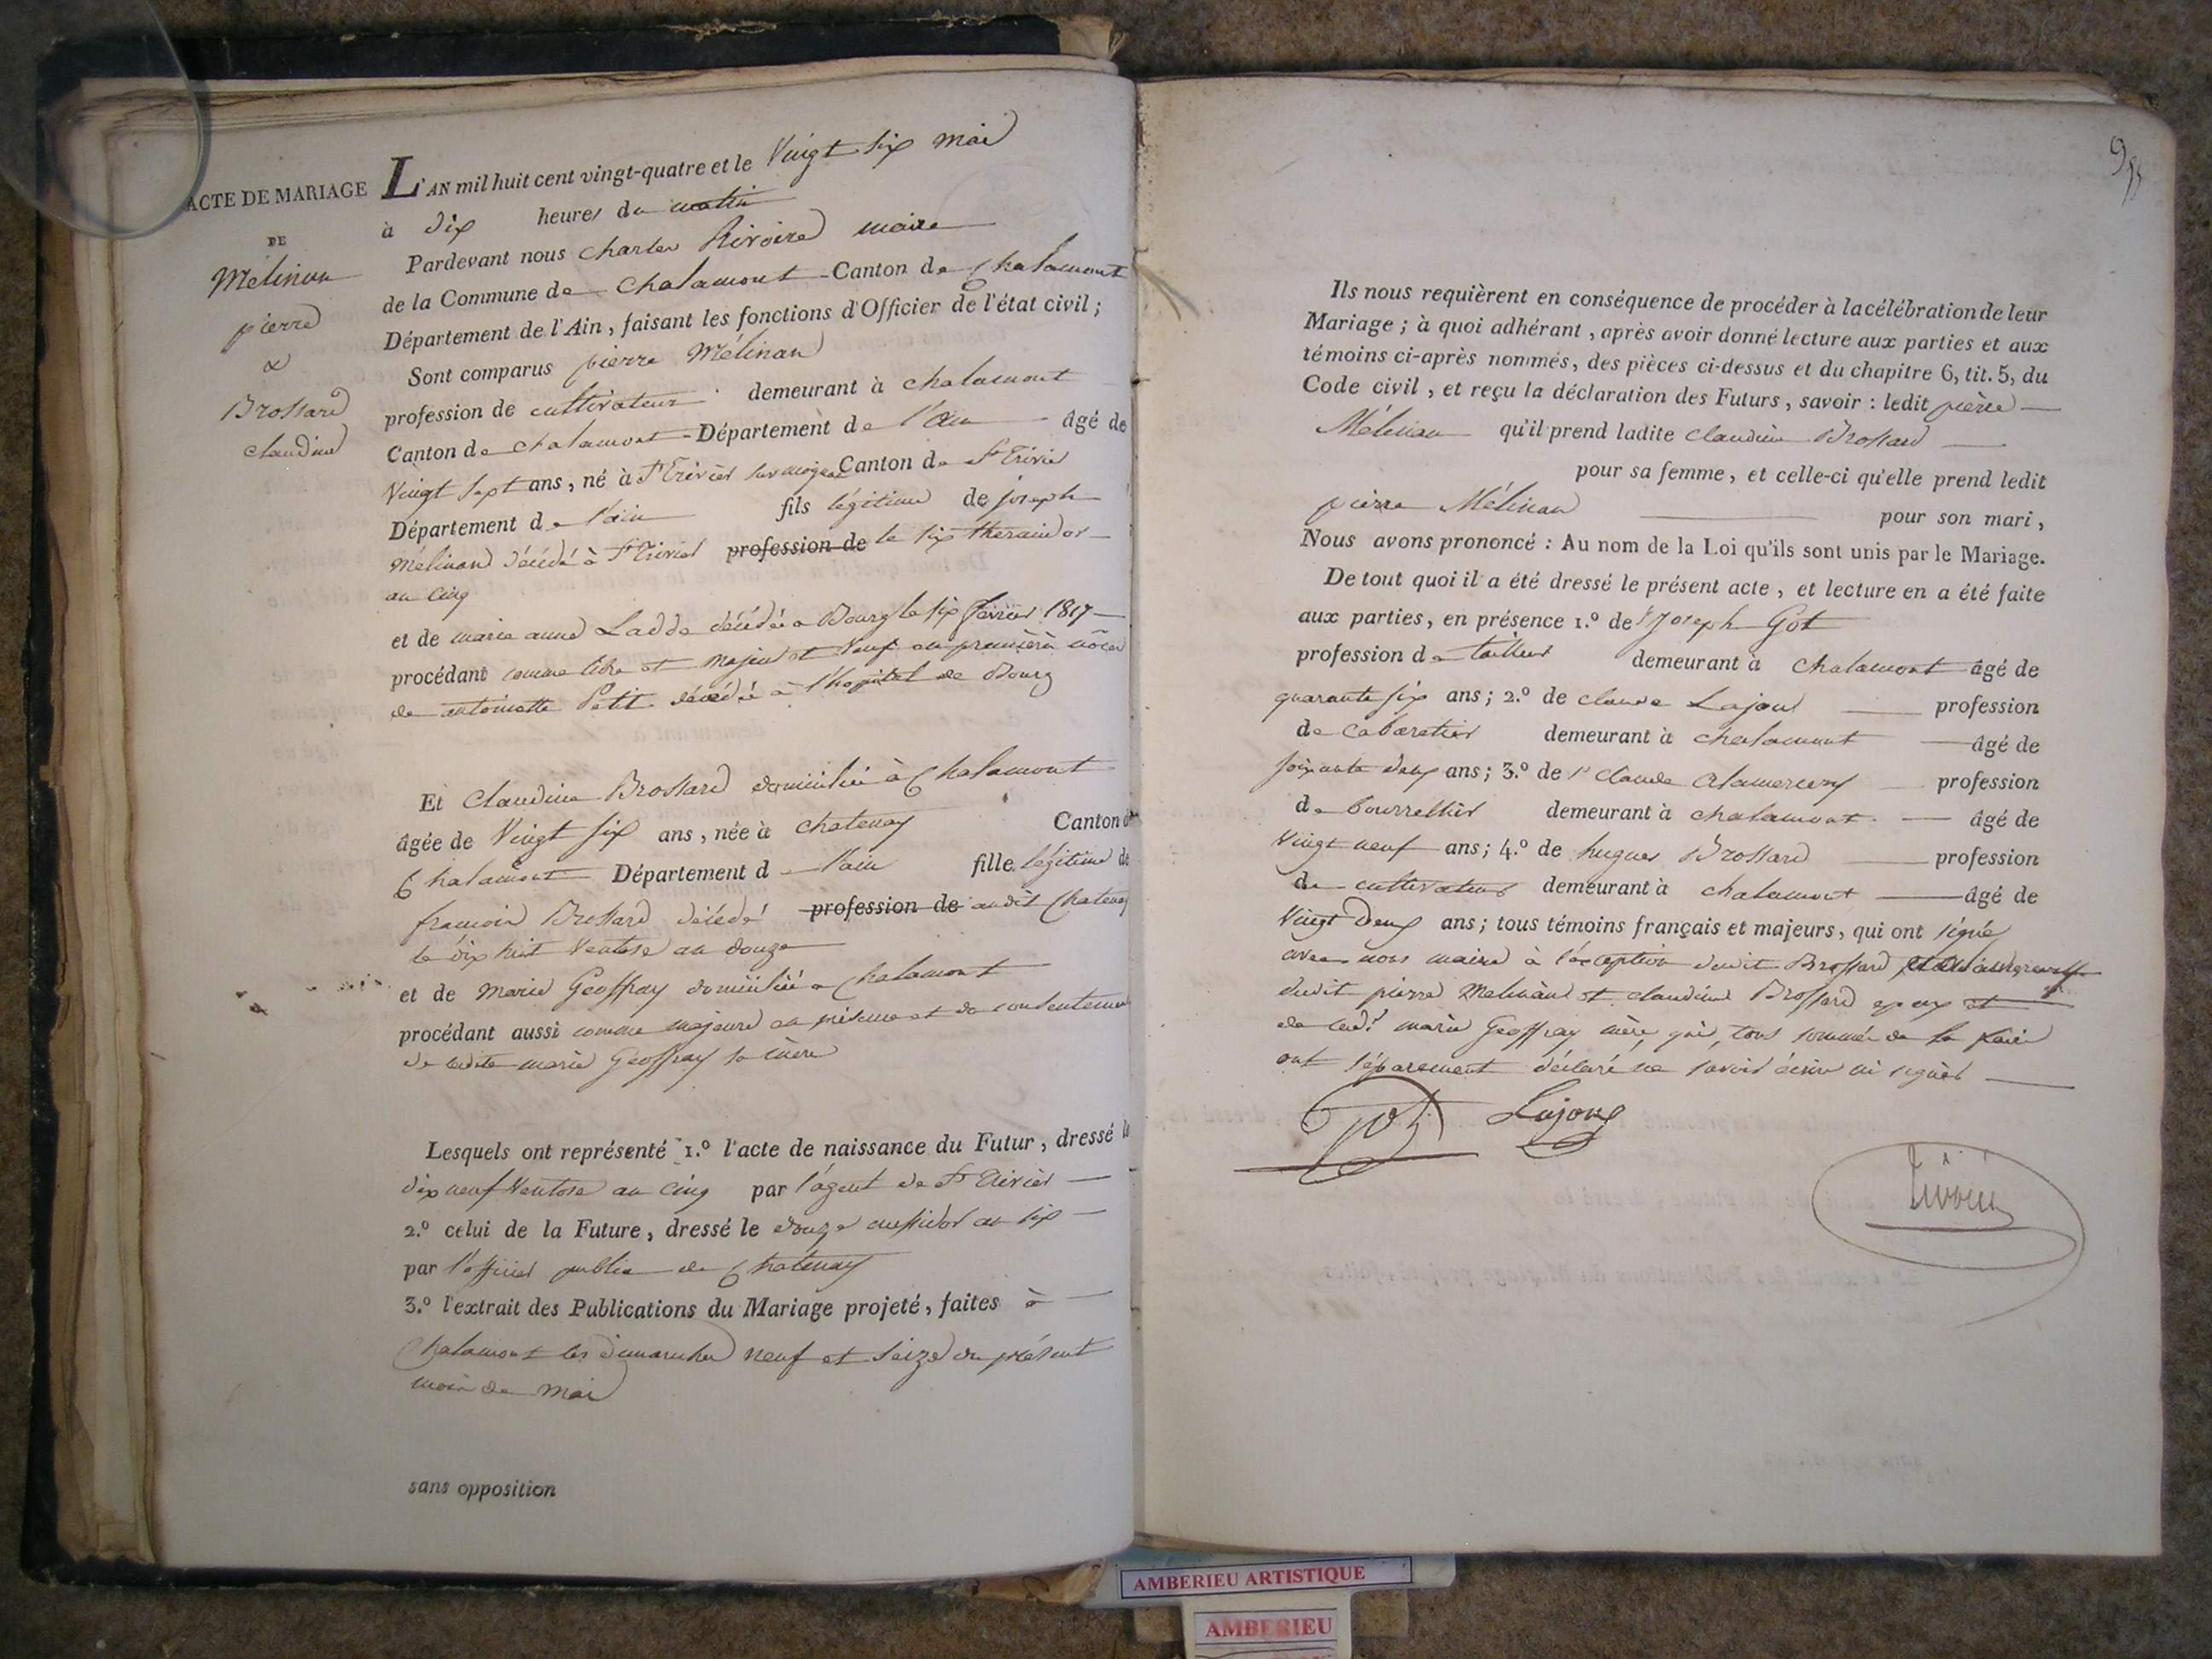 ACTE DE MARIAGE
DE
Mélinon
pierre
&
Brossard
claudine
L'AN mil huit cent vingt-quatre et le Vingt six mai
à dix heures du matin
Pardevant nous charles Rivoire maire
de la Commune de chalamont Canton de Chalamont
Département de l'Ain, faisant les fonctions d'Officier de l'état civil ;
Sont comparus pierre Mélinan
profession de cultivateur demeurant à chalamont
Canton de chalamont Département de l'ain âgé de
Vingt sept ans, né à St Trivier sur moignan Canton de St Trivier
Département de l'ain fils légitime de joseph
Mélinand décédé à St Trivier profession de le six thermidor
an cinq
et de marie anne Ladda décédée a Bourg le six février 1817
procédant comme libre et majeur et veuf en première nôces
de antoinette Petit décédée à l'hopital de Bourg
Et Claudine Brossard domiciliée à Chalamont
âgée de Vingt six ans, née à chatenay Canton de
Chalamont Département de l'ain fille légitime de
françois Brossard décédé profession de audit Chatenay
le dix huit Ventose an douze
et de Marie Geoffray domiciliée a Chalamont
procédant aussi comme majeure en présence et du consentement
de ladite marie Geoffray sa mère
Lesquels ont représenté 1.º l'acte de naissance du Futur, dressé le
dix neuf Ventose an cinq par l'agent de St Trivier
2.º celui de la Future, dressé le douze messidor an six
par l'officier public de Chatenay
3.º l'extrait des Publications du Mariage projeté, faites à
Chalamont les dimanches neuf et seize du présent
mois de mai
sans opposition
Ils nous requièrent en conséquence de procéder à la célébration de leur
Mariage ; à quoi adhérant, après avoir donné lecture aux parties et aux
témoins ci-après nommés, des pièces ci-dessus et du chapitre 6, tit. 5, du
Code civil, et reçu la déclaration des Futurs, savoir : ledit pierre
Mélinan qu'il prend ladite claudine Brossard
pour sa femme, et celle-ci qu'elle prend ledit
pierre Mélinan pour son mari,
Nous avons prononcé : Au nom de la Loi qu'ils sont unis par le Mariage.
De tout quoi il a été dressé le présent acte, et lecture en a été faite
aux parties, en présence 1.º de Sr Joseph Got
profession de tailleur demeurant à chalamont âgé de
quarante six ans ; 2.º de claude Lajoux profession
de cabaretier demeurant à chalamont âgé de
soixante deux ans ; 3.º de Sr claude profession
de bourrellier demeurant à chalamont âgé de
Vingt neuf ans ; 4.º de hugues Brossard profession
de cultivateur demeurant à chalamont âgé de
Vingt deux ans ; tous témoins français et majeurs, qui ont signé
avec nous maire à l'exception dudit Brossard
dudit pierre Melinan et claudine Brossard epoux et
de lad. marie Geoffray mère, qui, tous sommés de la faire
ont séparement déclaré ne savoir écrire ni signer
Got Lajoux
Rivoire
AMBERIEU ARTISTIQUE
AMBERIEU